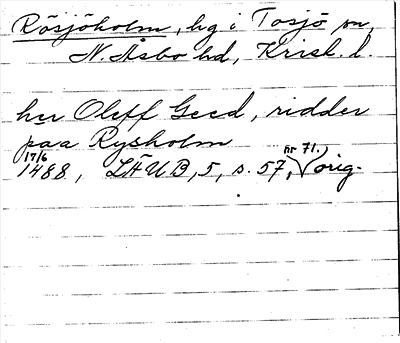 Rösjöholm, hg i Tosjö sn,
N. Åsbo hd, Krist. l.
her Oleff Geed, ridder
paa Rysholm
17/6 1488, LÄUB, 5, s. 57, nr 71. orig.